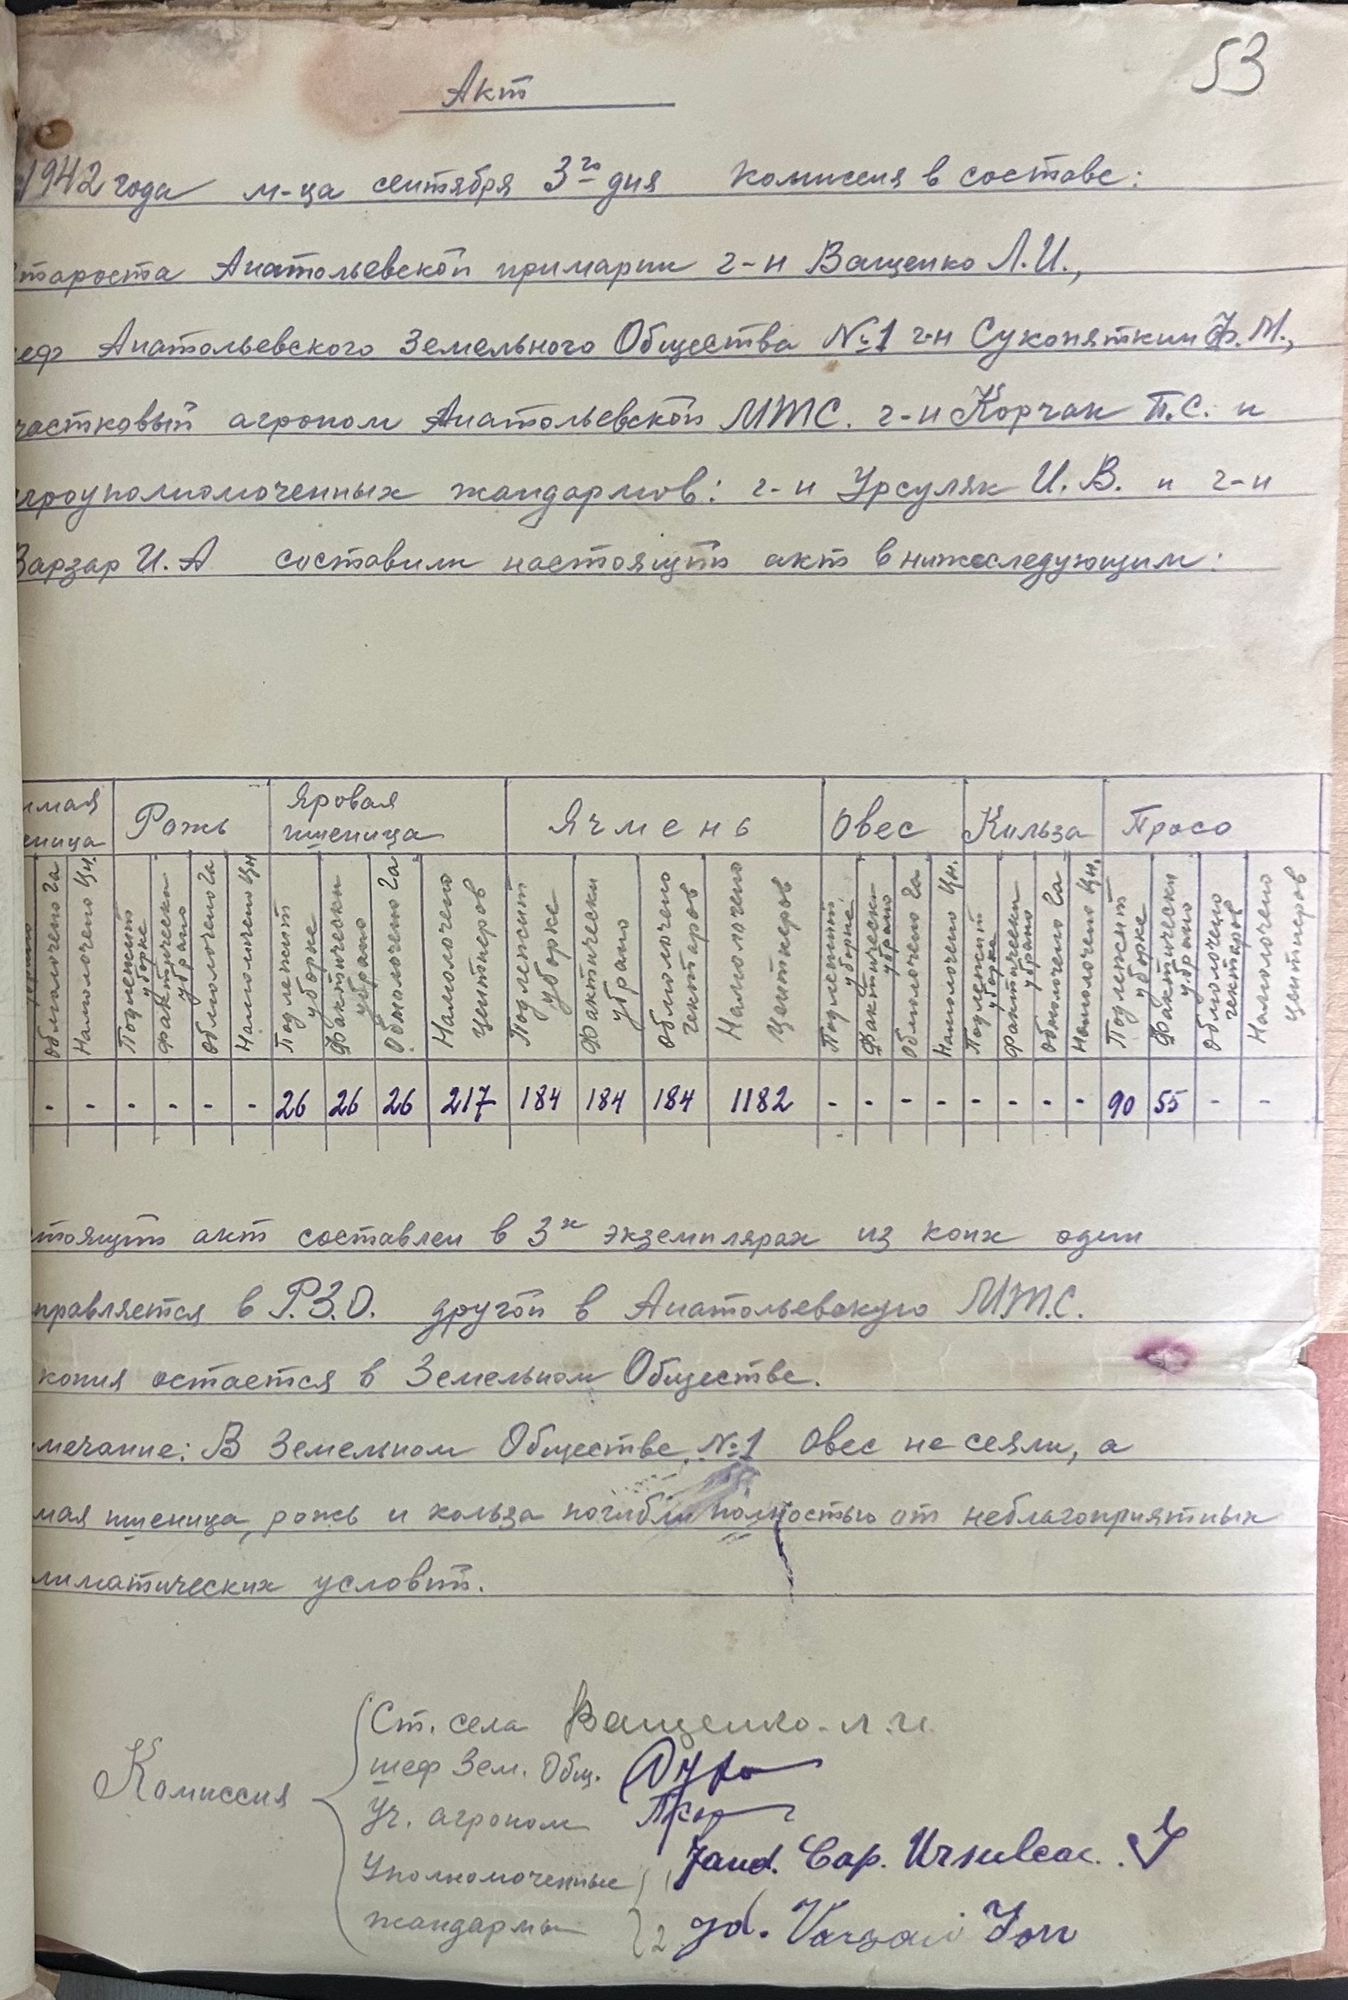 53
Акт
1942 года м-ца сентября 3го дня комиссия в составе:
тароста Анатольевской примарии г-н Ващенко Л.И.,
еф Анатольевского Земельного Общества №1 г-н Сухоняткин Ф.М.,
частковый агроном Анатольевской МТС. г-н Корчак П.С. и
гроуполномоченных жандармов: г-н Урсуляк И.В. и г-н
Варзар И.А составили настоящий акт в нижеследующим:
имая Рожь Яровая Ячмень Овес Кольза Просо
еница пшеница
обмолочено Га Намолочено Цн. Подлежит уборке Фактически убрано обмолочено Га Намолочено Цн Подлежит уборке Фактически убрано Обмолочено Га Намолочено центнеров Подлежит уборке Фактически убрано обмолочено гектаров Намолочено центнеров Подлежит уборке Фактически убрано Обмолочено Га Намолочено Цн. Подлежит уборке Фактически убрано Обмолочено Га Намолочено Цн. Подлежит уборке Фактически убрано обмолочено гектаров Намолочено центнеров
- - - - - - 26 26 26 217 184 184 184 1182 - - - - - - - - 90 55 - -
тоящий акт составлен в 3х экземплярах из коих один
правляется в Р.З.О. другой в Анатольевскую МТС.
копия остается в Земельном Обществе.
мечание: В Земельном Обществе №1 овес не сеяли, а
мая пшеница, рожь и кольза погибли полностью от неблагоприятных
лиматических условий.
Комиссия
Ст. села Ващенко. Л.И.
шеф Зем. Общ.
Уч. агроном
Уполномоченные Jand. Cap. Ursuleac. J
жандармы 2 jd. Varzari Ion